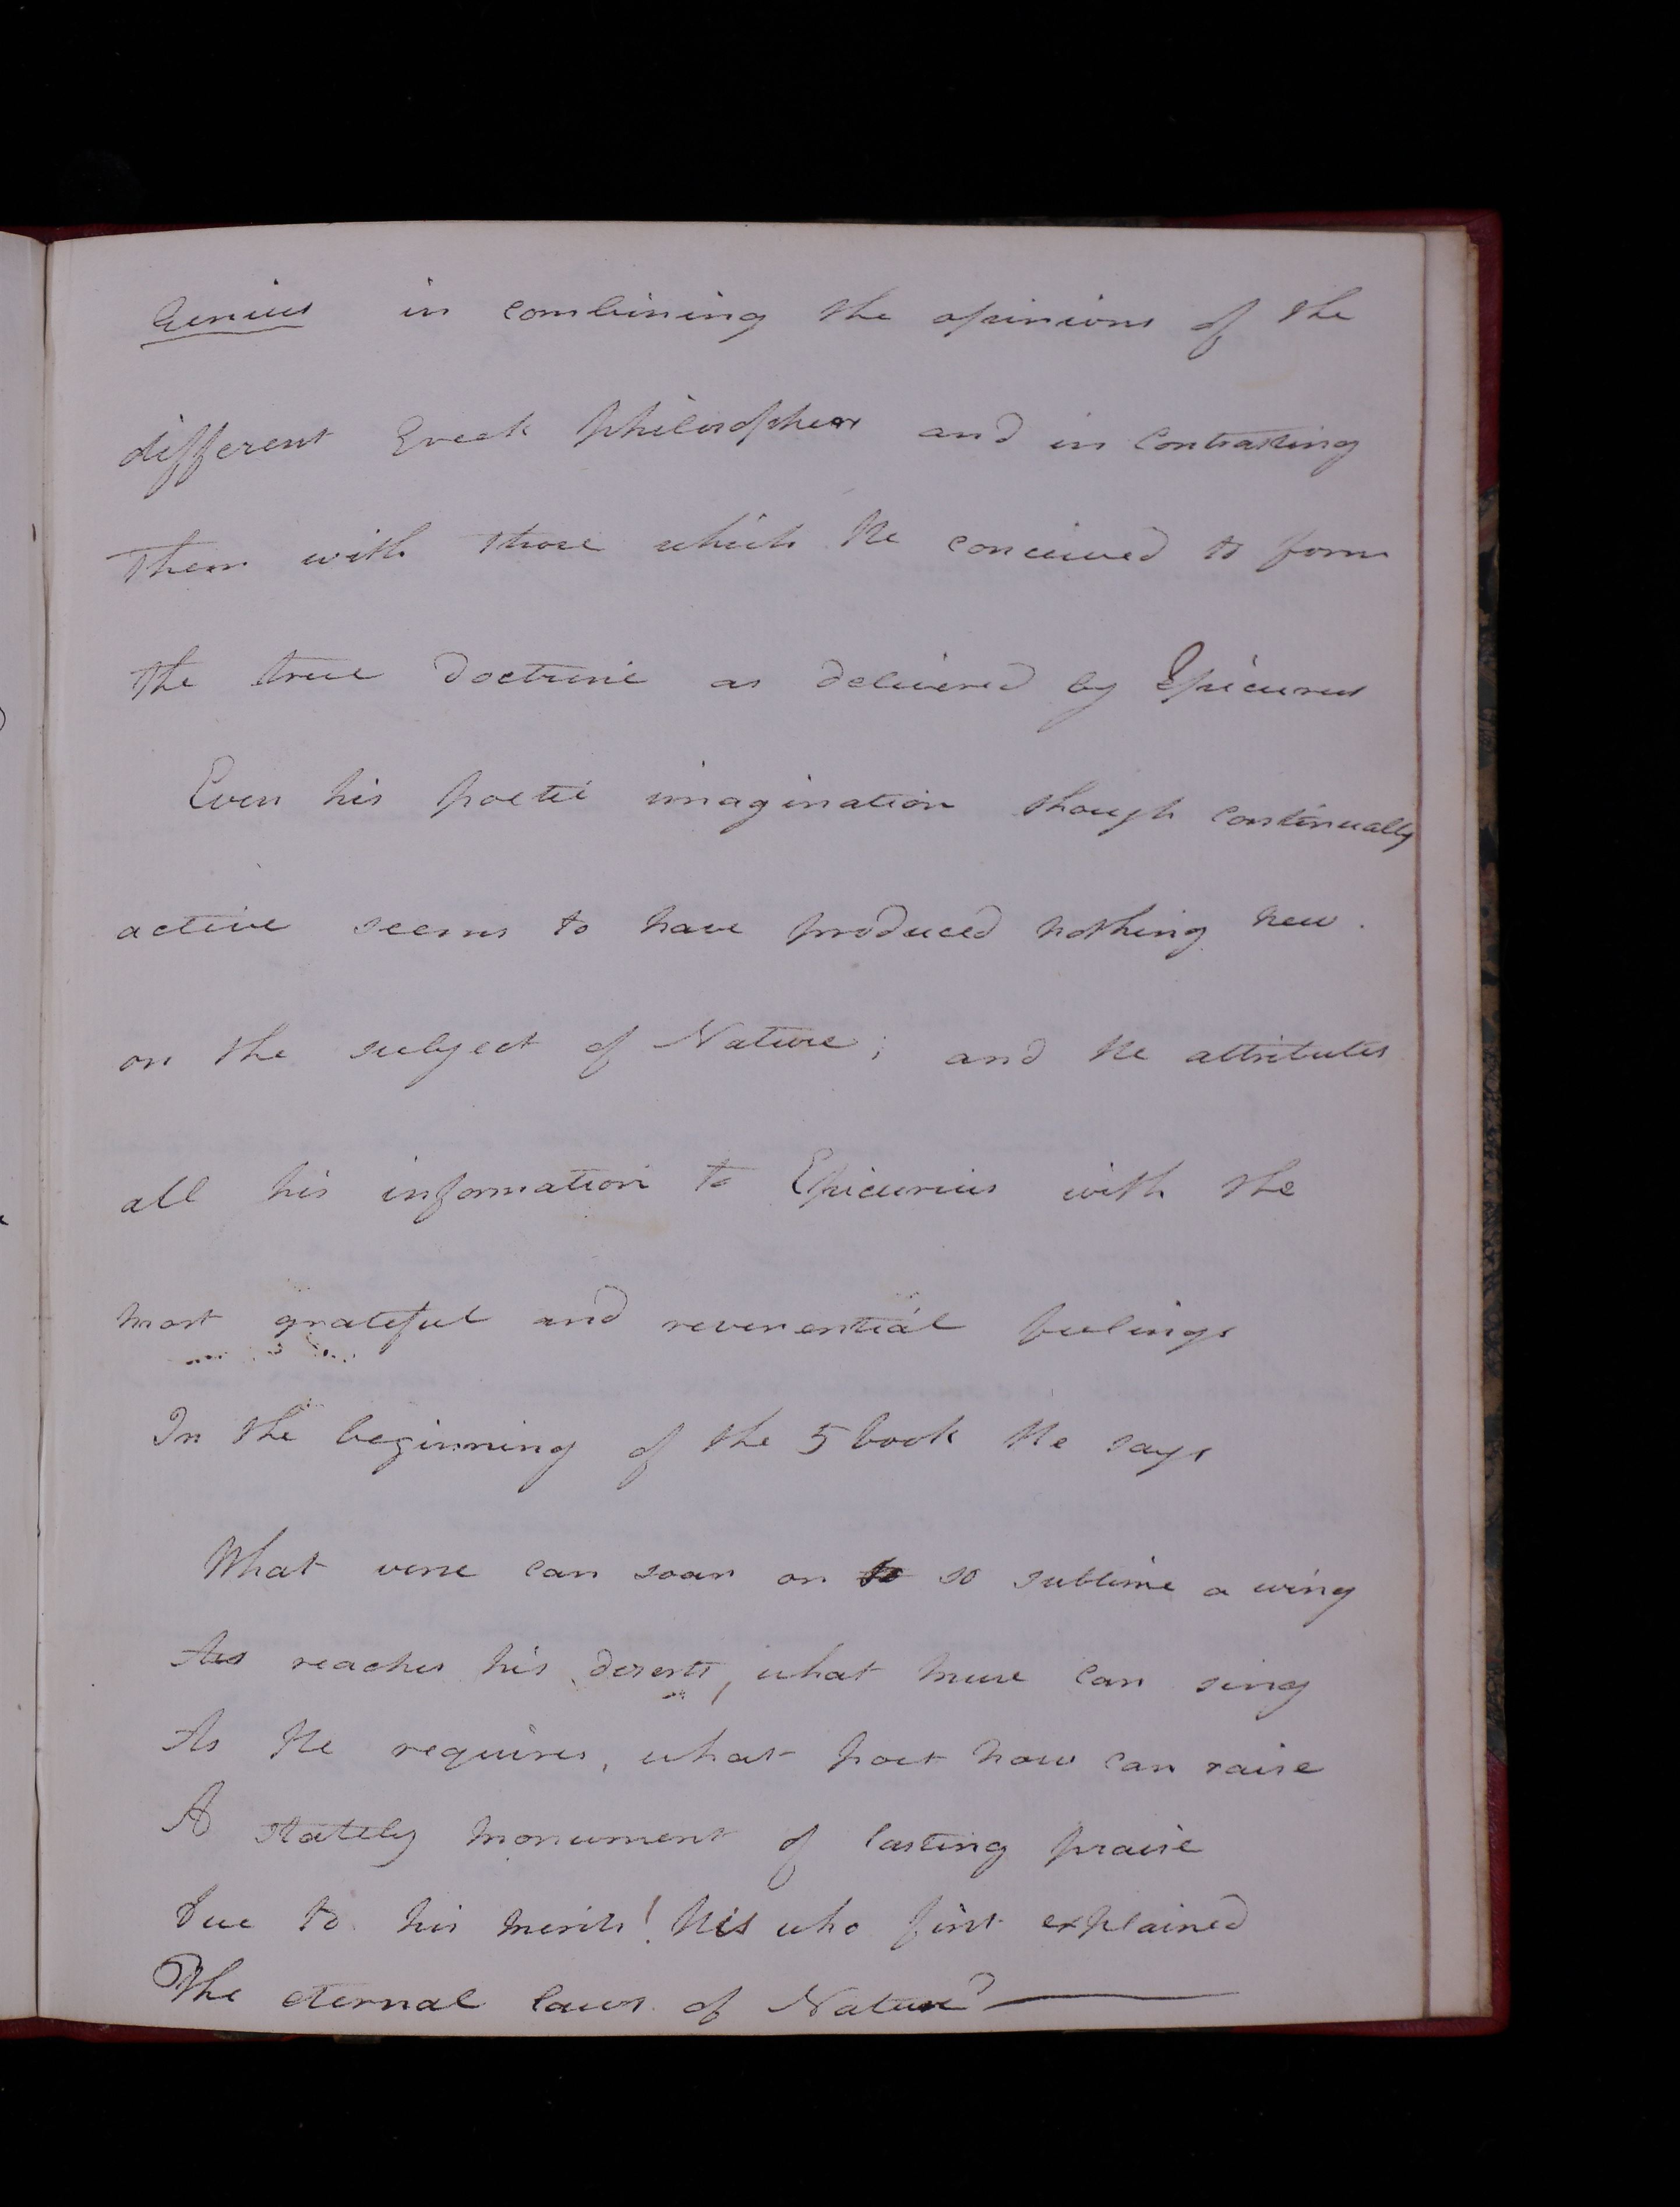 Genius in combining the opinions of the
different Greek philosophers and in contrasting
them with those which He conceived to form
the true doctrine as delivered by Epicurus
Even his poetic imagination though continually
active seems to have produced nothing new.
on the subject of Nature; and He attributes
all his information to Epicurius with the
most grateful and reverential feelings
In the beginning of the 5 book He says
What verse can soar on so so sublime a wing
As reaches his deserts, what muse can sing
As He requires, what poet now can raise
A stately monument of lasting praise
Due to his merits! His who first explained
The eternal laws of Nature?